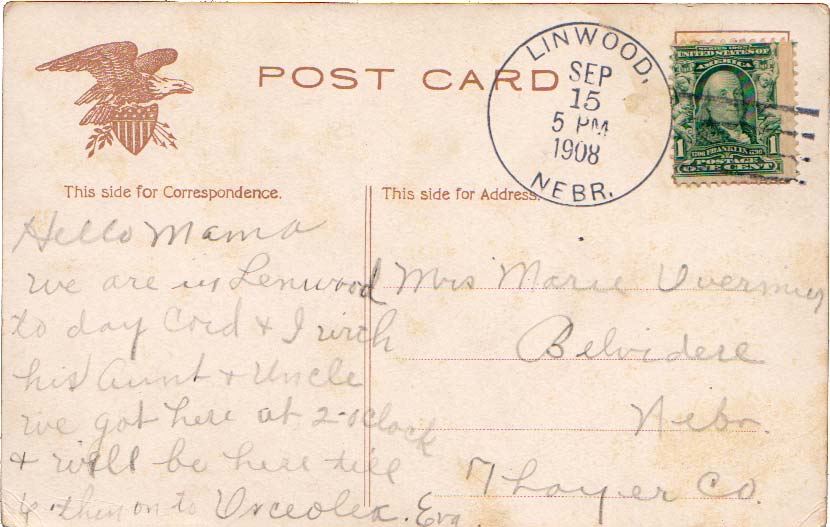 POST CARD
LINWOOD,
SEP
15
5 PM
1908
NEBR.
SERIES 1902
UNITED STATES OF
AMERICA
1 FRANKLIN 1
POSTAGE
ONE CENT
This side for Correspondence.
This side for Address.
Hello Mama
we are in Lenwood
to day Cord & I with
his Aunt & Uncle
we got here at 2-oclock
& will be here till
6 then on to Osceolea. Eva
Mrs Marie
Belvidere
Nebr.
Thayer Co.